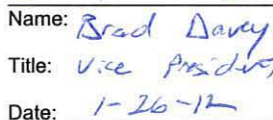 Name: Brad Davey
Title: Vice President
Date: 1-26-12